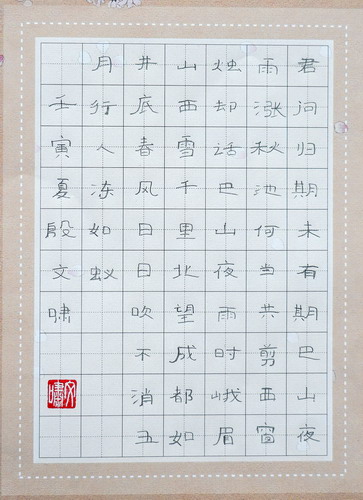 君问归期未有期巴山夜
雨涨秋池何当共剪西窗
烛却话巴山夜雨时峨眉
山西雪千里北望成都如
井底春风日日吹不消五
月行人冻如蚁
壬寅夏殷文啸
文啸